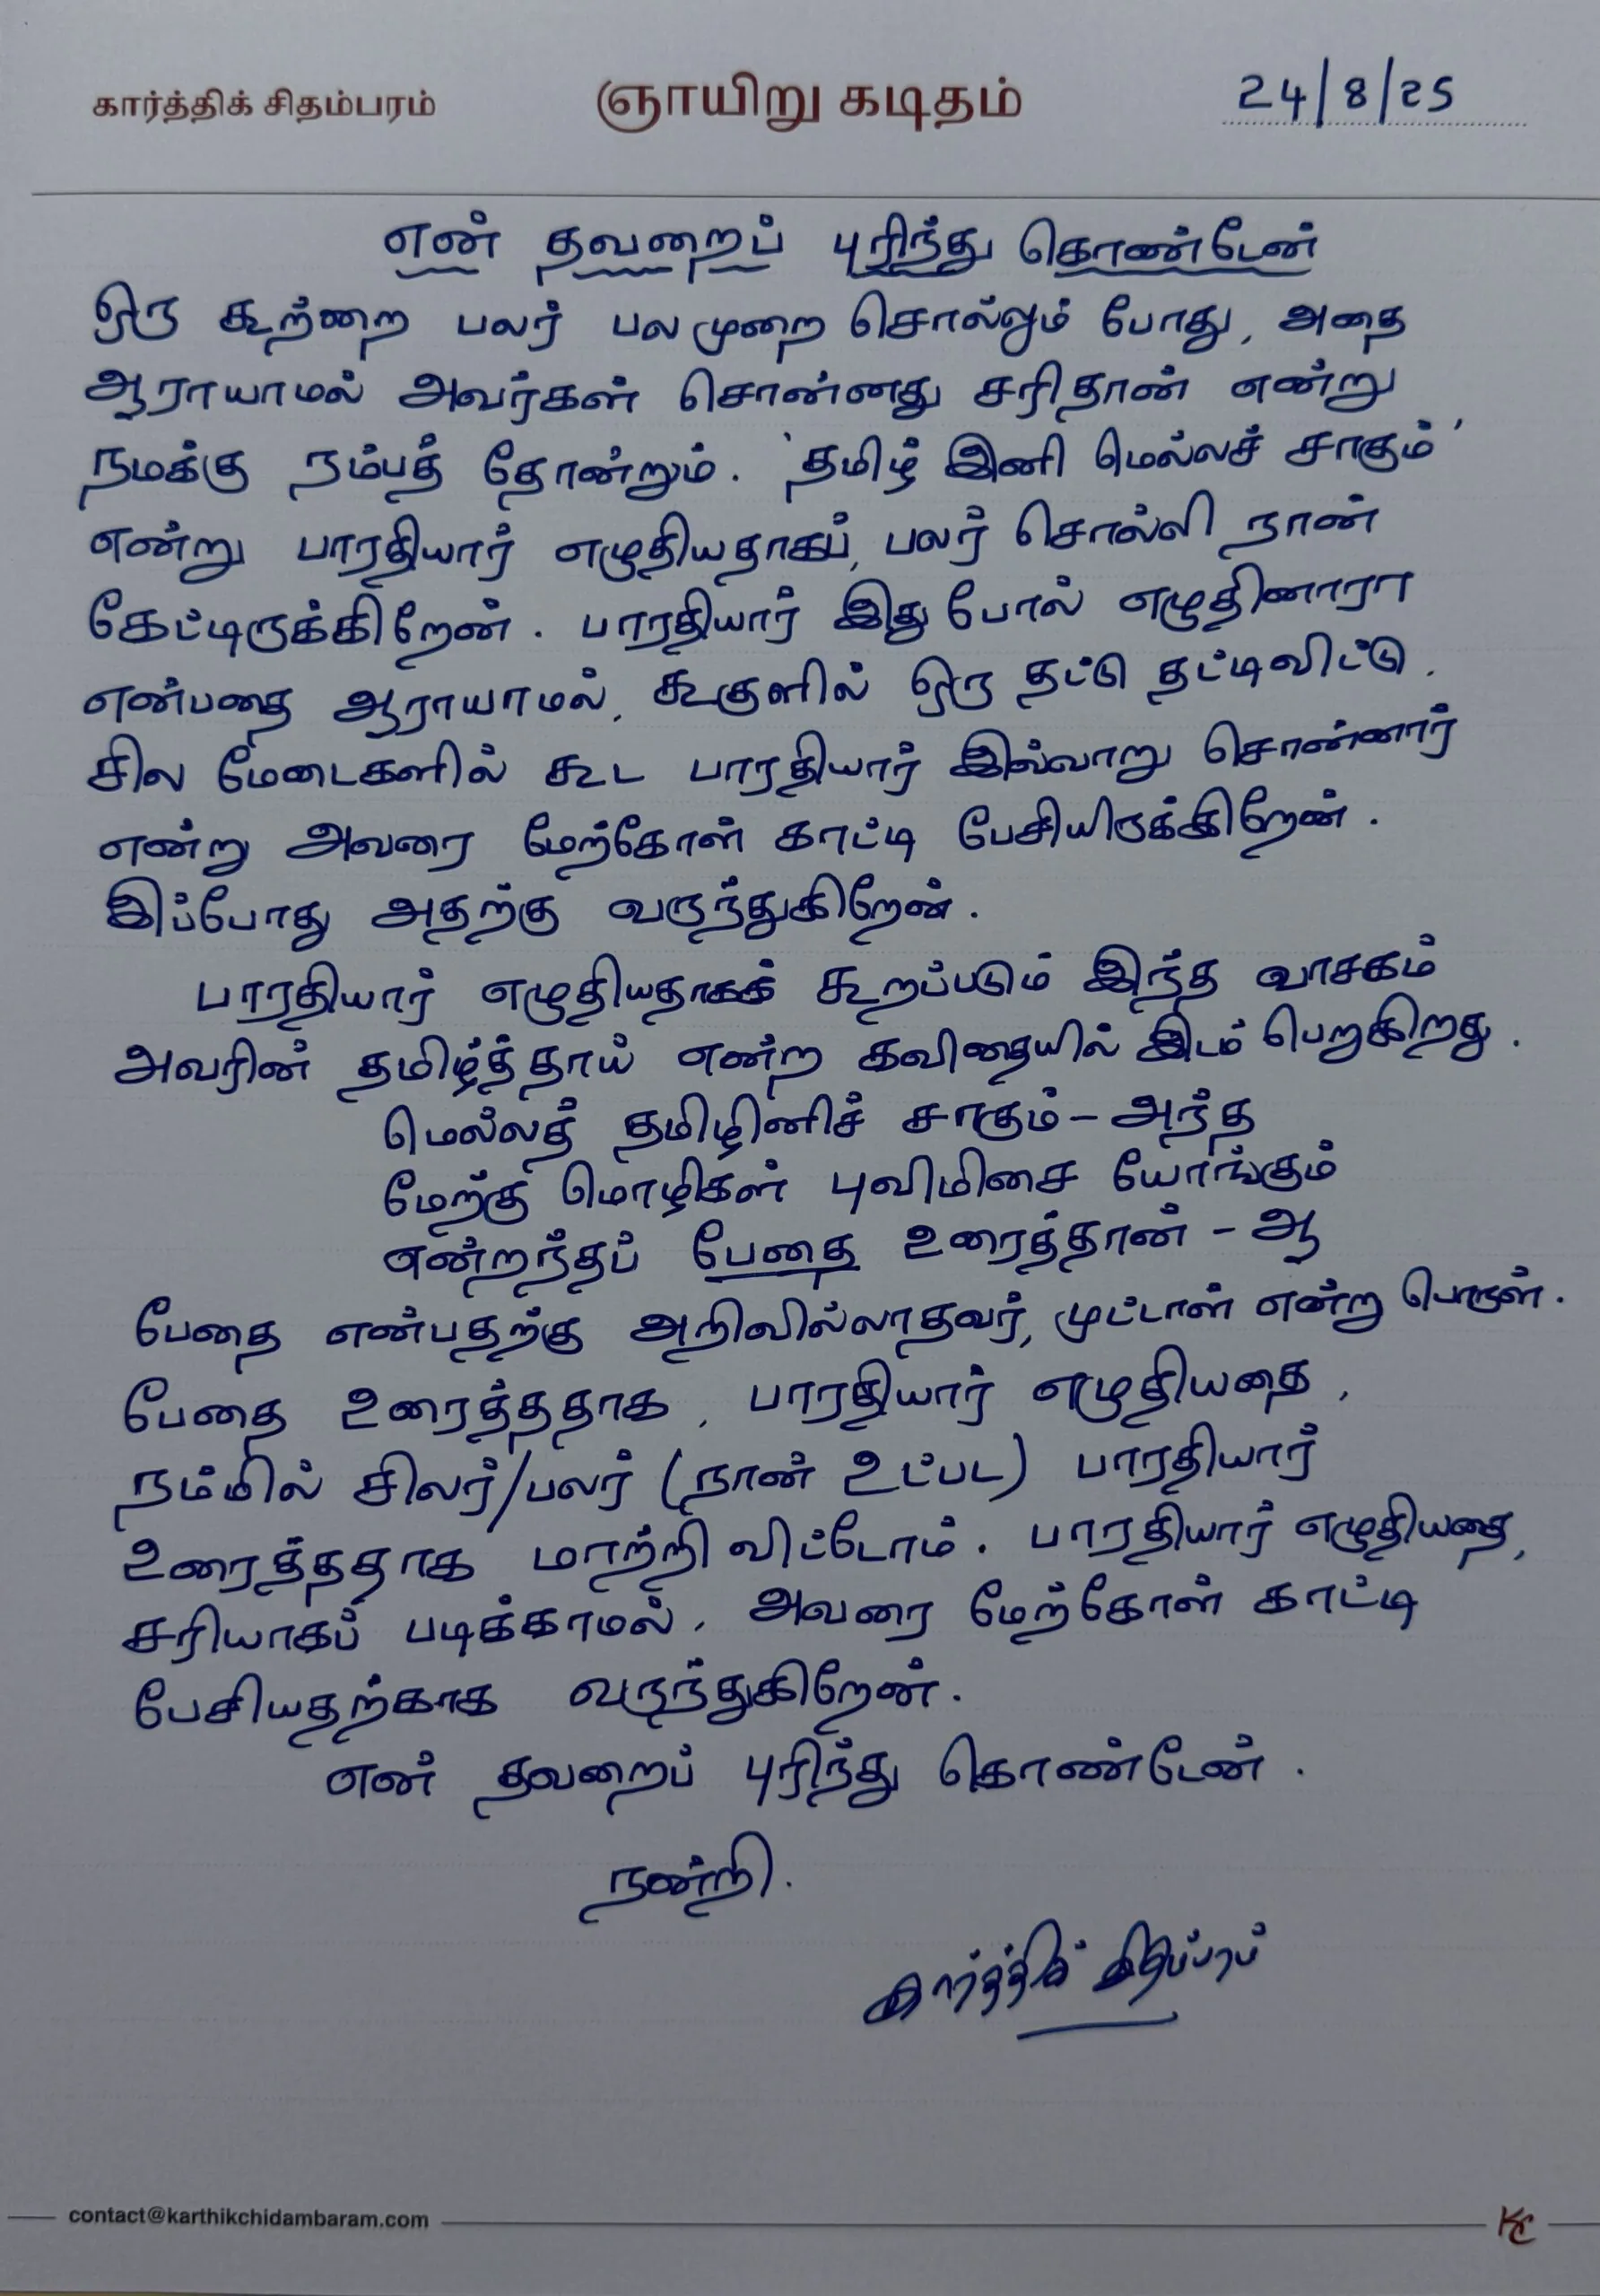 கார்த்திக் சிதம்பரம் ஞாயிறு கடிதம் 24/8/25
என் தவறைப் புரிந்து கொண்டேன்
ஒரு கூற்றை பலர் பலமுறை சொல்லும் போது, அதை
ஆராயாமல் அவர்கள் சொன்னது சரிதான் என்று
நமக்கு நம்பத் தோன்றும். 'தமிழ் இனி மெல்லச் சாகும்'
என்று பாரதியார் எழுதியதாகப், பலர் சொல்லி நான்
கேட்டிருக்கிறேன். பாரதியார் இது போல் எழுதினாரா
என்பதை ஆராயாமல், கூகுளில் ஒரு தட்டு தட்டிவிட்டு,
சில மேடைகளில் கூட பாரதியார் இவ்வாறு சொன்னார்
என்று அவரை மேற்கோள் காட்டி பேசியிருக்கிறேன்.
இப்போது அதற்கு வருந்துகிறேன்.
பாரதியார் எழுதியதாகக் கூறப்படும் இந்த வாசகம்
அவரின் தமிழ்த்தாய் என்ற கவிதையில் இடம் பெறுகிறது.
மெல்லத் தமிழினிச் சாகும் - அந்த
மேற்கு மொழிகள் புவிமிசை யோங்கும்
என்றந்தப் பேதை உரைத்தான் - ஆ
பேதை என்பதற்கு அறிவில்லாதவர், முட்டாள் என்று பொருள்.
பேதை உரைத்ததாக, பாரதியார் எழுதியதை,
நம்மில் சிலர்/பலர் (நான் உட்பட) பாரதியார்
உரைத்ததாக மாற்றி விட்டோம். பாரதியார் எழுதியதை,
சரியாகப் படிக்காமல், அவரை மேற்கோள் காட்டி
பேசியதற்காக வருந்துகிறேன்.
என் தவறைப் புரிந்து கொண்டேன்.
நன்றி.
கார்த்திக் சிதம்பரம்
contact@karthikchidambaram.com KC